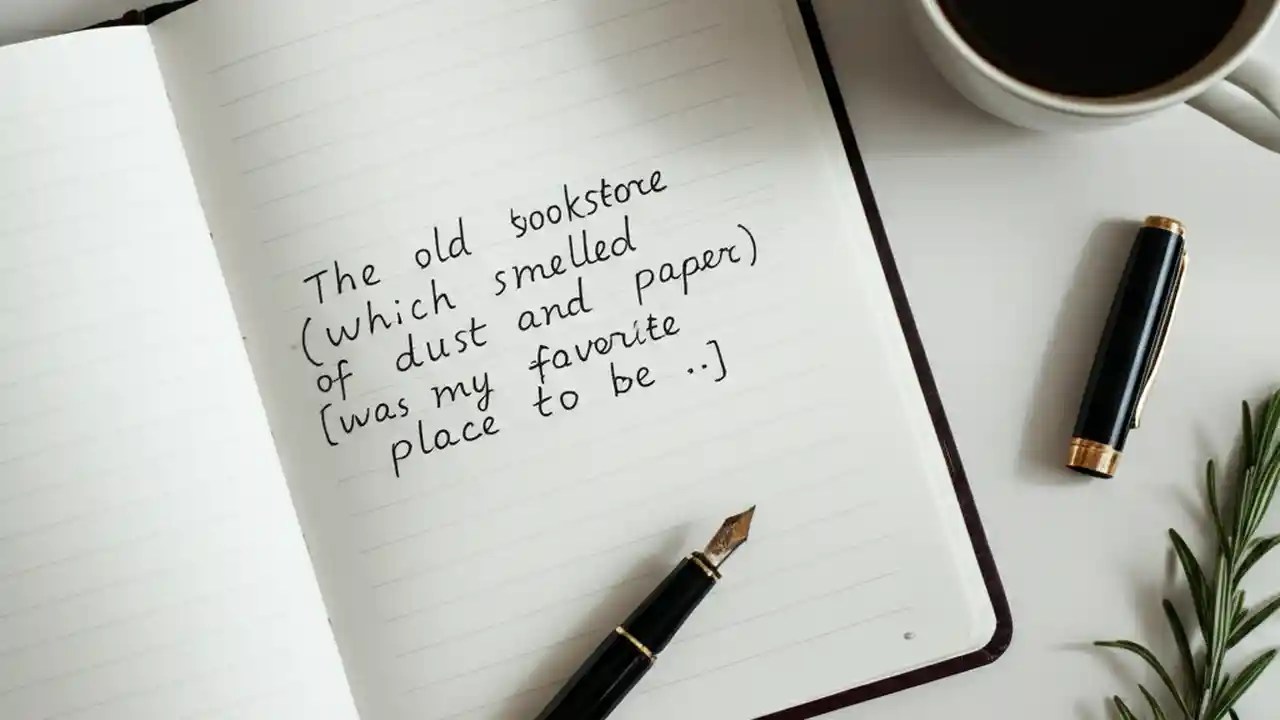 The old bookstore
(which smelled
of dust and paper)
[was my favorite
place to be ..]